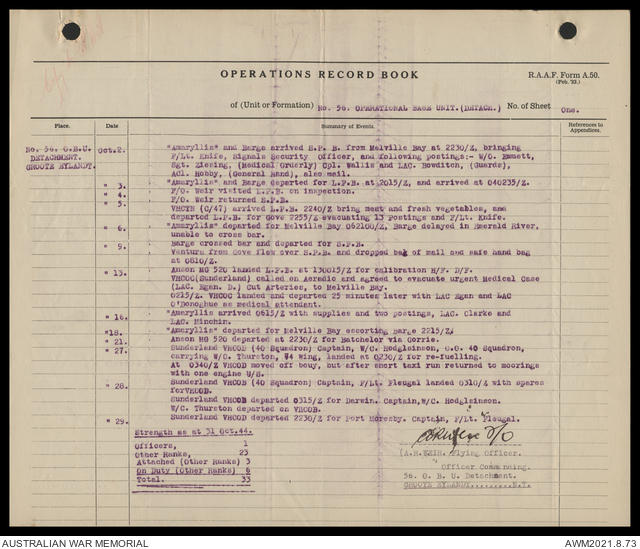 OPERATIONS RECORD BOOK
R.A.A.F. Form A.50.
(Feb. '23.)
of (Unit or Formation) No. 56. OPERATIONAL BASE UNIT.(DETACH.) No. of Sheet One.
Place. Date Summary of Events. References to Appendices.
No. 56. O.B.U. Oct.2. "Amaryllis" and Barge arrived S.P.B. from Melville Bay at 2230/Z, bringing
DETACHMENT. F/Lt. Knife, Signals Security Officer, and following postings:- W/O. Emmett,
GROOTE EYLANDT. Sgt. Ziesing, (Medical Orderly) Cpl. Wallis and LAC. Bowditch, (Guards),
ACl. Hobby, (General Hand), also mail.
" 3. "Amaryllis" and Barge departed for L.P.B. at 2015/Z, and arrived at 040235/Z.
" 4. F/O. Weir visited L.P.B. on inspection.
" 5. F/O. Weir returned S.P.B.
VHCTH (C/47) arrived L.P.B. 2240/Z bring meat and fresh vegetables, and
departed L.P.B. for Gove 2255/Z evacuating 13 Postings and F/Lt. Knife.
" 6. "Amaryllis" departed for Melville Bay 062100/Z, Barge delayed in Emerald River,
unable to cross bar.
Barge crossed bar and departed for S.P.B.
" 9. Ventura from Gove flew over S.P.B. and dropped bag of mail and safe hand bag
at 0810/Z.
" 13. Anson MG 520 landed L.P.B. at 130015/Z for calibration H/F. D/F.
VHCOC(Sunderland) called on Aeradio and agreed to evacuate urgent Medical Case
(LAC. Egan. D.) Cut Arteries, to Melville Bay.
0215/Z. VHCOC landed and departed 25 minutes later with LAC Egan and LAC
O'Donoghue as medical attendant.
" 16. "Amaryllis arrived 0615/Z with supplies and two postings, LAC. Clarke and
LAC. Minchin.
"18. "Amaryllis" departed for Melville Bay escorting Barge 2215/Z.
" 21. Anson MG 520 departed at 2230/Z for Batchelor via Gorrie.
" 27. Sunderland VHCOD (40 Squadron) Captain, W/C. Hodgleinson, C.O. 40 Squadron,
carrying W/C. Thurston, 84 Wing, landed at 0230/Z for re-fuelling.
At 0340/Z VHCOD moved off bouy, but after short taxi run returned to moorings
with one engine U/S.
" 28. Sunderland VHCOB (40 Squadron) Captain, F/Lt. Fleugal landed 0310/Z with spares
forVHCOD.
Sunderland VHCOB departed 0315/Z for Darwin. Captain,W/C. Hodgleinson.
W/C. Thurston departed on VHCOB.
" 29. Sunderland VHCOD departed 2230/Z for Port Moresby. Captain, F/Lt. Fleugal.
Strength as at 31 Oct.44.
Officers, 1
Other Ranks, 23
Attached (Other Ranks) 3
On Duty (Other Ranks) 6
Total. 33
(A.R.WEIR. Flying Officer.
Officer Commanding.
56. O. B. U. Detachment.
GROOTE EYLANDT.........N.T.
AUSTRALIAN WAR MEMORIAL
AWM2021.8.73